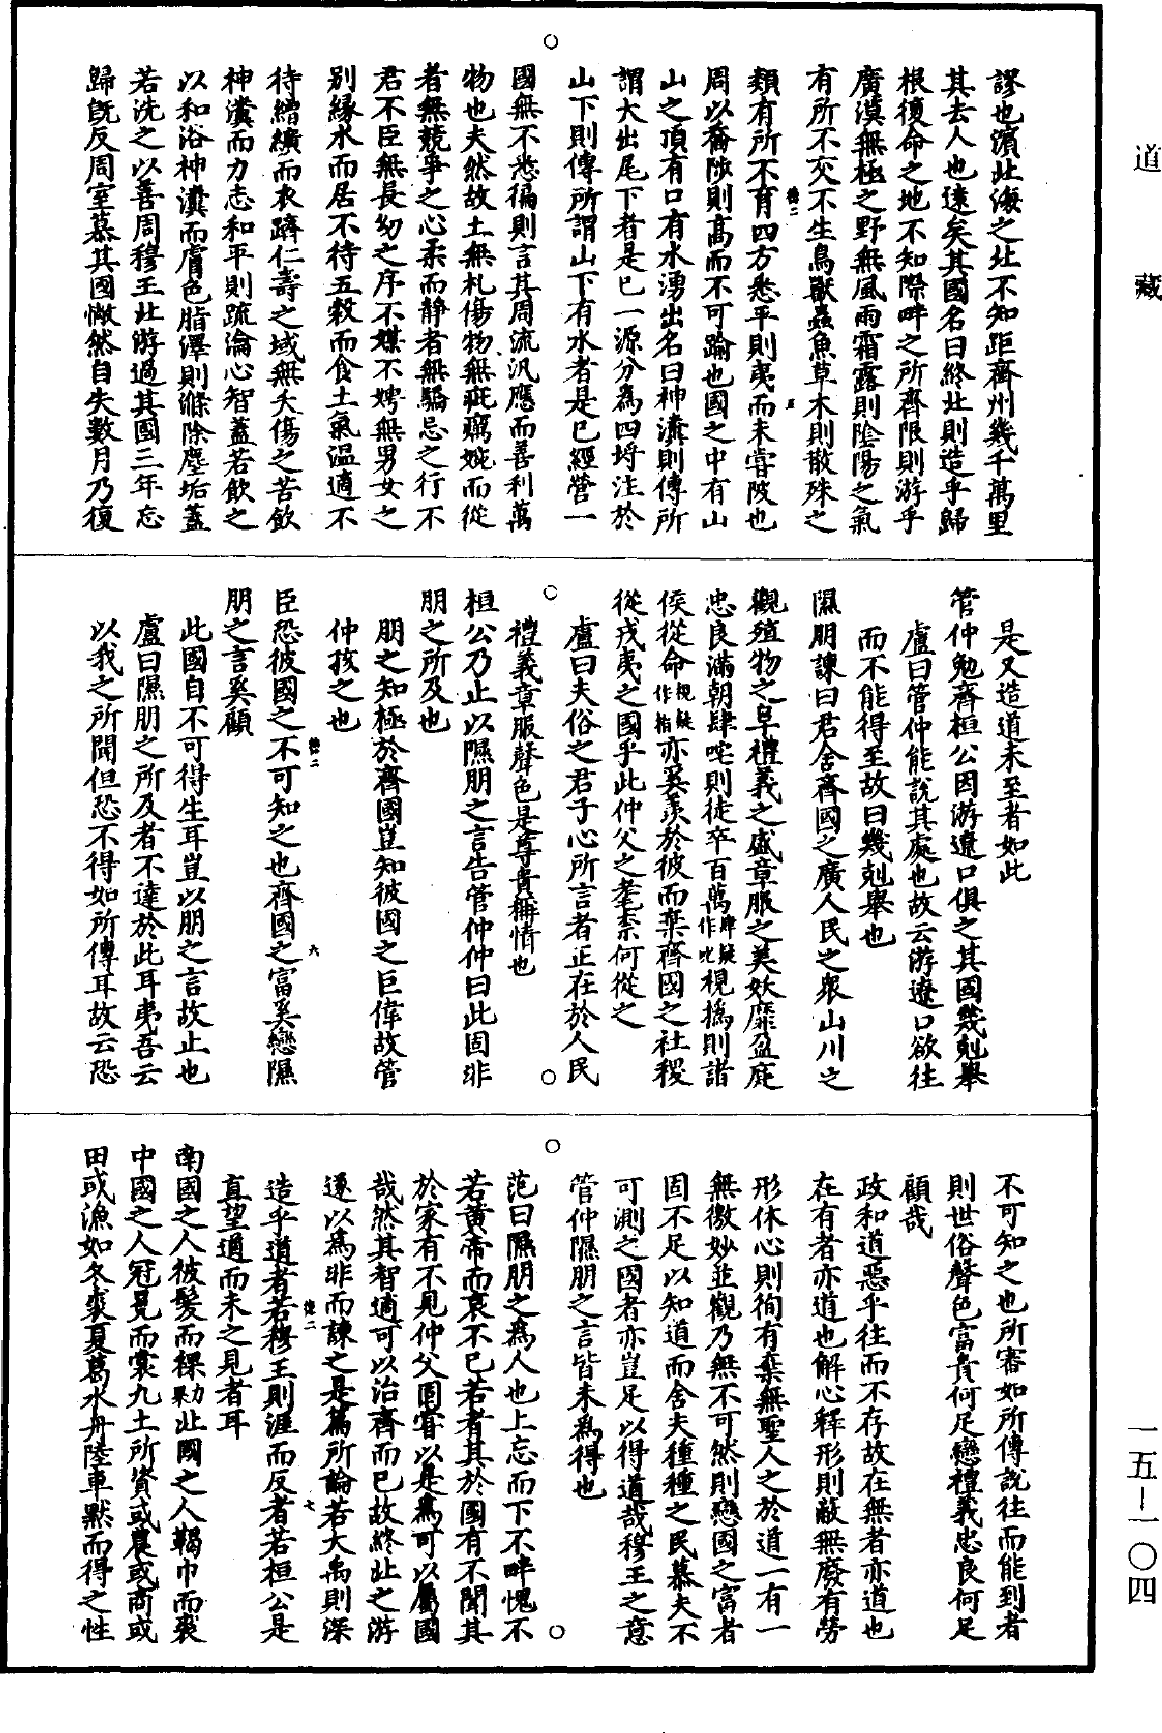 道藏
謬也濱北海之北不知距齊州幾千萬里
其去人也遠矣其國名曰終北則造乎歸
根復命之地不知際畔之所齊限則游乎
廣漠無極之野無風雨霜露則陰陽之氣
有所不交不生鳥獸蟲魚草木則散殊之
類有所不育四方悉平則夷而未嘗陂也
周以喬陟則高而不可踰也國之中有山
山之頂有口有水湧出名曰神瀵則傳所
謂大出尾下者是已一源分為四埒注於
山下則傳所謂山下有水者是已經營一
國無不悉徧則言其周流汎應而善利萬
物也夫然故土無札傷物無疵癘婉而從
者無競爭之心柔而靜者無驕忌之行不
君不臣無長幼之序不媒不娉無男女之
別緣水而居不待五穀而食土氣温適不
待繒纊而衣躋仁壽之域無夭傷之苦飲
神瀵而力志和平則疏瀹心智蓋若飲之
以和浴神瀵而膚色脂澤則滌除塵垢蓋
若洗之以善周穆王北游過其國三年忘
歸旣反周室慕其國惝然自失數月乃復
是又造道未至者如此
管仲勉齊桓公因游遼口俱之其國幾剋舉
盧曰管仲能說其處也故云游遼口欲往
而不能得至故曰幾剋舉也
隰朋諫曰君舍齊國之廣人民之眾山川之
觀殖物之阜禮義之盛章服之美妖靡盈庭
忠良滿朝肆咤則徒卒百萬肆疑作叱視撝則諸
侯從命視疑作指亦奚羨於彼而棄齊國之社稷
從戎夷之國乎此仲父之耄柰何從之
盧曰夫俗之君子心所言者正在於人民
禮義章服聲色是尊貴稱情也
桓公乃止以隰朋之言告管仲仲曰此固非
朋之所及也
朋之知極於齊國豈知彼國之巨偉故管
仲孩之也
臣恐彼國之不可知之也齊國之富奚戀隰
朋之言奚顧
此國自不可得生耳豈以朋之言故止也
盧曰隰朋之所及者不達於此耳夷吾云
以我之所聞但恐不得如所傳耳故云恐
不可知之也所審如所傳說往而能到者
則世俗聲色富貴何足戀禮義忠良何足
顧哉
政和道惡乎往而不存故在無者亦道也
在有者亦道也解心釋形則蔽無廢有勞
形休心則徇有棄無聖人之於道一有一
無徼妙並觀乃無不可然則戀國之富者
固不足以知道而舍夫種種之民慕夫不
可測之國者亦豈足以得道哉穆王之意
管仲隰朋之言皆未為得也
范曰隰朋之為人也上忘而下不畔愧不
若黃帝而哀不已若者其於國有不聞其
於家有不見仲父固嘗以是為可以屬國
哉然其智適可以治齊而已故終北之游
遂以為非而諫之是篇所論若大禹則深
造乎道者若穆王則涯而反者若桓公是
直望道而未之見者耳
南國之人被髮而裸北國之人鞨巾而裘
中國之人冠冕而裳九土所資或農或商或
田或漁如冬裘夏葛水舟陸車默而得之性
一五-一〇四